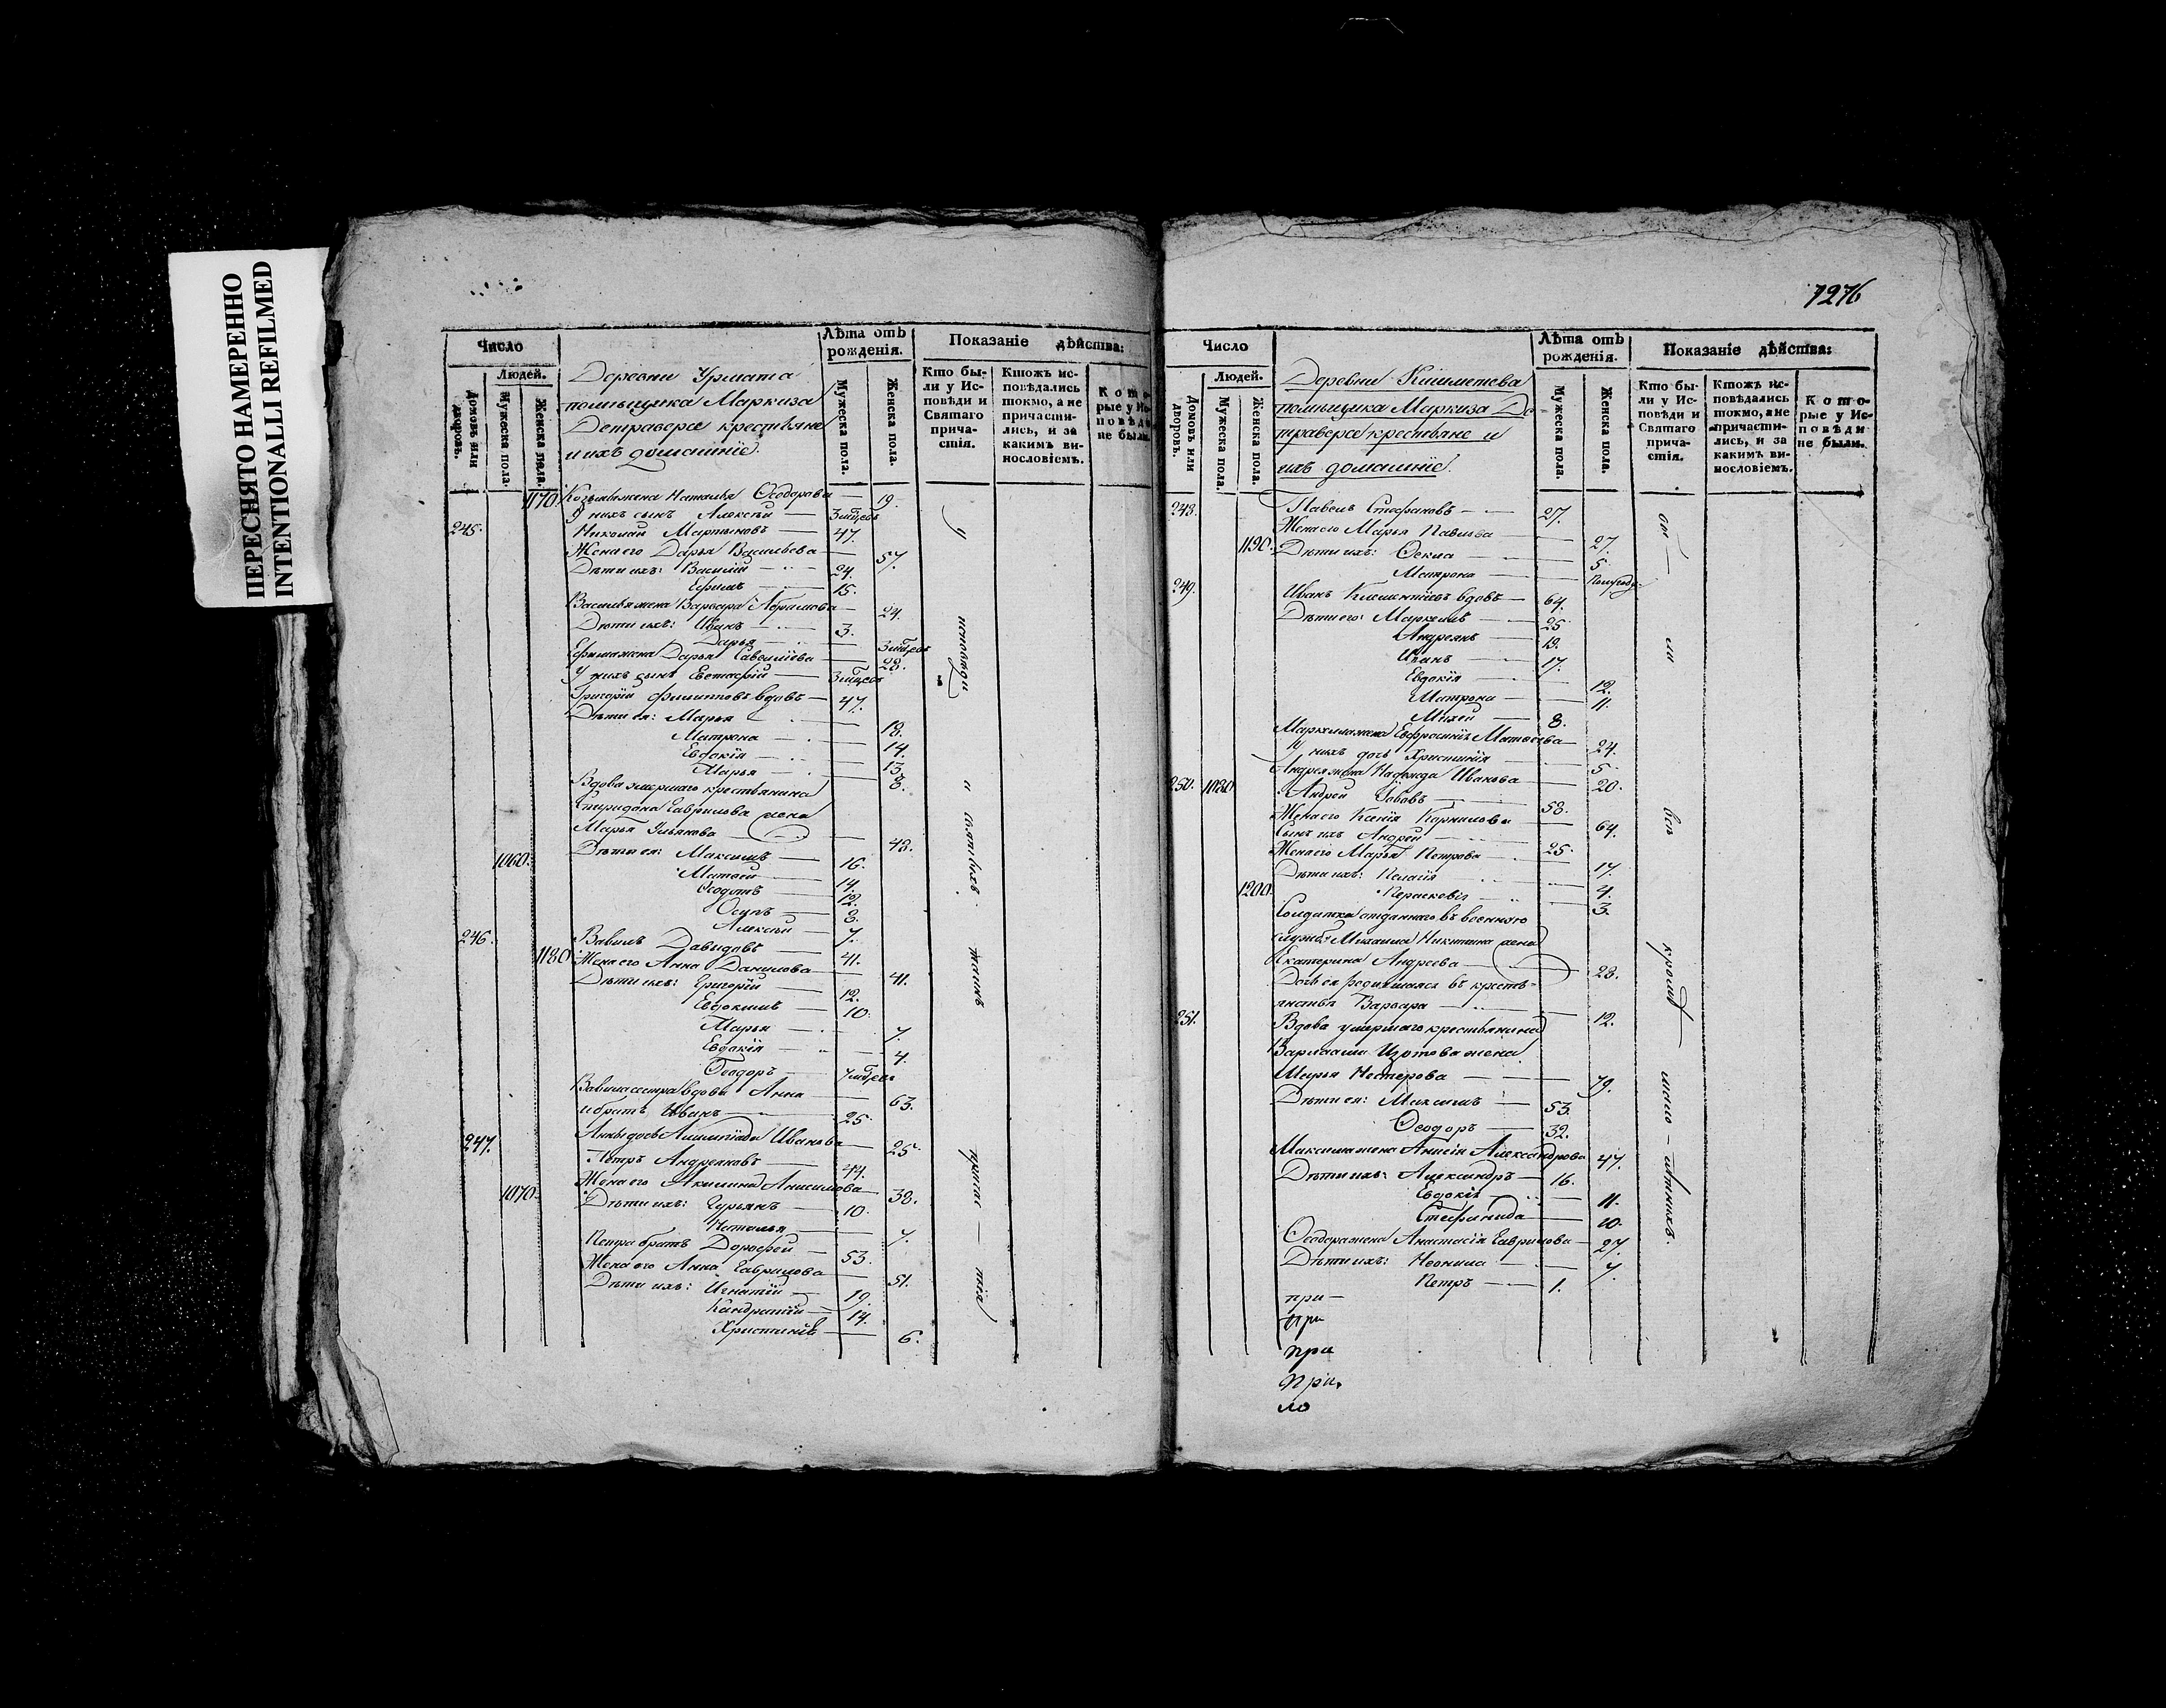 ПЕРЕСНЯТО НАМЕРЕННО
INTENTIONALLI REFILMED
Число
Людей.
Домовъ или дворовъ.
Мужеска пола.
Женска пола.
Деревни Урмата
помѣщика Маркиза
Детраверсе крестьяне
и ихъ домашніе.
Лѣта отъ рожденія.
Мужеска пола.
Женска пола.
Показаніе дѣйства:
Кто бы-
ли у Ис-
повѣди и
Святаго
прича-
стія.
Ктожъ ис-
повѣдались
токмо, а не
причасти-
лись, и за
какимъ ви-
нословіемъ.
Кото-
рые у Ис-
повѣди
не были.
1170. Козьмы жена Наталья Ѳеодорова — 19.
У нихъ сынъ Алексѣй — 3 мѣцевъ
245. Николай Мартыновъ — 47.
Жена его Дарья Васильева — 57.
Дѣти ихъ: Василій — 24.
Ефимъ — 15.
Василья жена Варвара Абрамова — 24.
Дѣти ихъ: Иванъ — 3.
Дарья — 3 мѣцевъ
Ефима жена Дарья Савельева — 28.
У нихъ сынъ Евстафій — 3 мѣцевъ
Григорій Филиповъ вдовъ — 47.
Дѣти ея: Марья — 18.
Матрона — 14.
Евдокія — 13.
Марья — 8.
Вдова умершаго крестьянина
Спиридона Гаврилова жена
Марья Ульянова — 48.
1060. Дѣти ея: Максимъ — 16.
Матвей — 14.
Ѳеодотъ — 12.
Осипъ — 8.
Алексѣй — 7.
246. Вавилъ Давыдовъ — 41.
1180. Жена его Анна Данилова — 41.
Дѣти ихъ: Григорій — 12.
Евдокимъ — 10.
Марья — 7.
Евдокія — 4.
Ѳеодоръ — 7 мѣцевъ
Вавила сестра вдова Анна — 63.
и братъ Иванъ — 25.
Анны дочь Алимпіада Иванова — 25.
247. Петръ Андреяновъ — 44.
Жена его Акилина Анисимова — 38.
1070. Дѣти ихъ: Гурьянъ — 10.
Наталья — 7.
Петра братъ Дорофей — 53.
Жена его Анна Гаврилова — 51.
Дѣти ихъ: Игнатій — 19.
Кандратій — 14.
Христинія — 6.
у исповѣди и святыхъ таинъ прича — тія
1276
Число
Людей.
Домовъ или дворовъ.
Мужеска пола.
Женска пола.
Деревни Кишметева
помѣщика Маркиза Де-
траверсе крестьяне и
ихъ домашніе.
Лѣта отъ рожденія.
Мужеска пола.
Женска пола.
Показаніе дѣйства:
Кто бы-
ли у Ис-
повѣди и
Святаго
прича-
стія.
Ктожъ ис-
повѣдались
токмо, а не
причасти-
лись, и за
какимъ ви-
нословіемъ.
Кото-
рые у Ис-
повѣди
не были.
248. Павелъ Стефановъ — 27.
Жена его Марья Павлова — 27.
1190. Дѣти ихъ: Ѳекла — 5.
Матрона — полугоду
249. Иванъ Климентіевъ вдовъ — 64.
Дѣти его: Маркелъ — 25.
Андреянъ — 19.
Иванъ — 17.
Евдокія — 12.
Матрона — 11.
Михей — 8.
Маркела жена Евфросинія Матвеева — 24.
У нихъ дочь Христинія — 5.
Андрея жена Надежда Иванова — 20.
250. 1080. Андрей Іововъ — 58.
Жена его Ксенія Корнилова — 64.
Сынъ ихъ Андрей — 25.
Жена его Марья Петрова — 17.
Дѣти ихъ: Пелагія — 4.
1200. Перасковія — 3.
Солдатка отданнаго въ военную
службу Михаила Никитина жена
Екатерина Андреева — 28.
Дочь ея родившаяся въ кресть-
янствѣ Варвара — 12.
251. Вдова умершаго крестьянина
Варлаама Изотова жена
Марья Нестерова — 79.
Дѣти ея: Максимъ — 53.
Ѳеодоръ — 32.
Максима жена Анисія Александрова — 47.
Дѣти ихъ: Александръ — 16.
Евдокія — 11.
Стефанида — 10.
Ѳеодора жена Анастасія Гаврилова — 27.
Дѣти ихъ: Неонила — 7.
Петръ — 1.
при —
при
при
при.
ло
бы — ли всѣ кромѣ мало — лѣтнихъ.